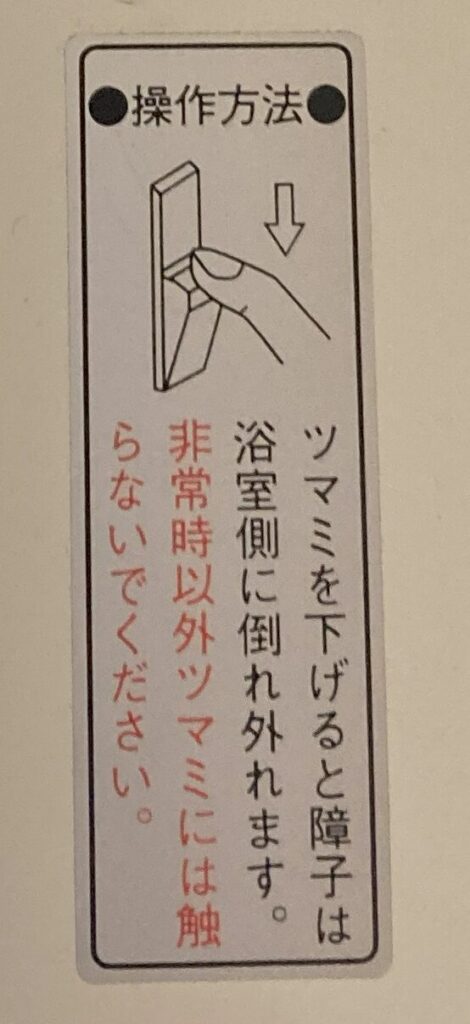 ●操作方法●
ツマミを下げると障子は
浴室側に倒れ外れます。
非常時以外ツマミには触
らないでください。